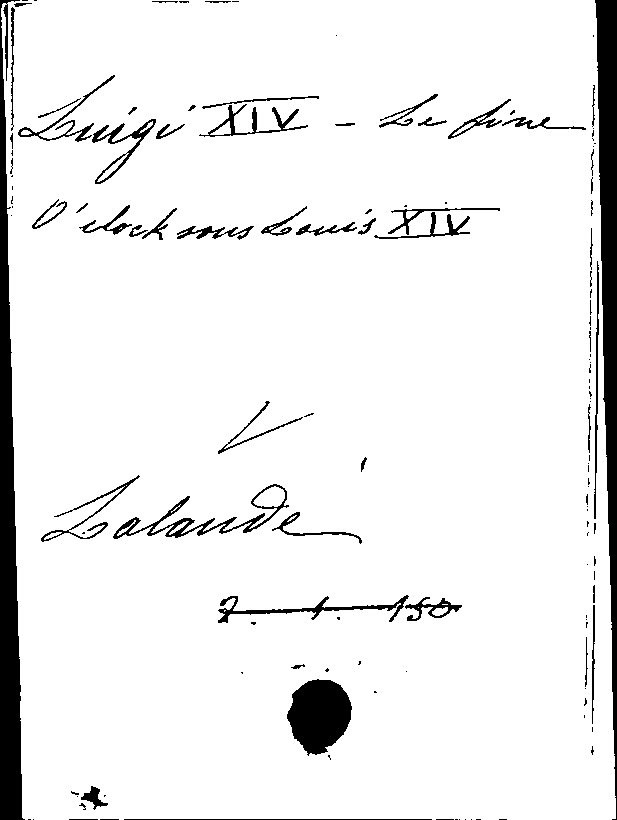 Luigi XIV - Le fine
O'clock sous Louis XIV
V
Lalande
2. 1. 150